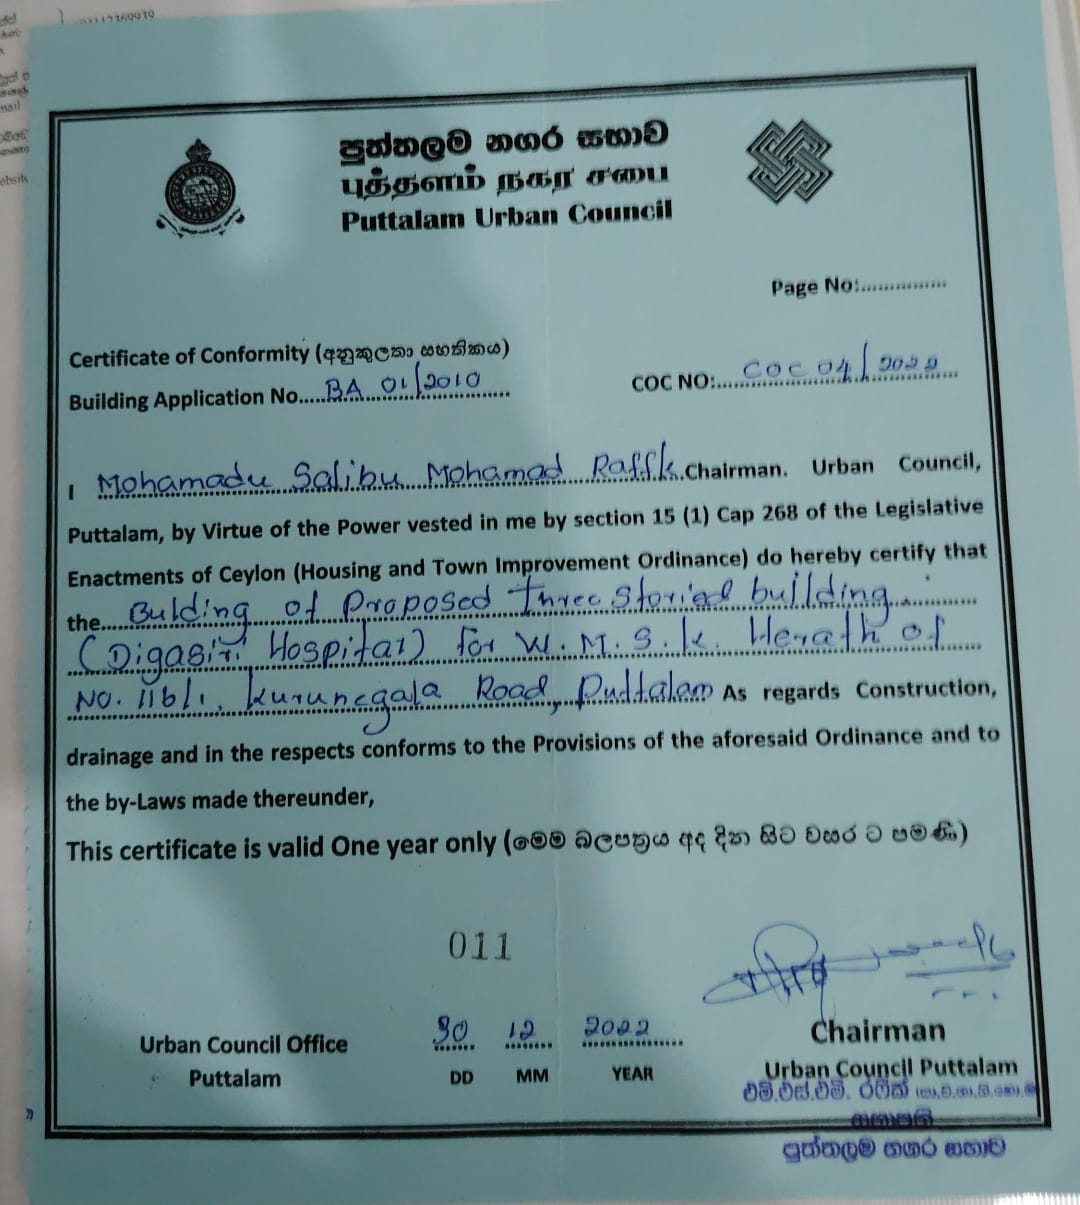 පුත්තලම නගර සභාව
புத்தளம் நகர சபை
Puttalam Urban Council
Page No:...............
Certificate of Conformity (අනුකූලතා සහතිකය)
Building Application No.....BA 01/2010
COC NO:.....COC 04/2022
I Mohamadu Salibu Mohamad Raffk..Chairman. Urban Council,
Puttalam, by Virtue of the Power vested in me by section 15 (1) Cap 268 of the Legislative
Enactments of Ceylon (Housing and Town Improvement Ordinance) do hereby certify that
the....Bulding of Proposed Three Storied building
(Digasiri Hospital) for W.M.S.K. Herath of
NO. 116/1, Kurunegala Road, Puttalam As regards Construction,
drainage and in the respects conforms to the Provisions of the aforesaid Ordinance and to
the by-Laws made thereunder,
This certificate is valid One year only (මෙම බලපත්‍රය අද දින සිට වසර ට පමණි)
011
Urban Council Office
Puttalam
30 12 2022
DD MM YEAR
Chairman
Urban Council Puttalam
එම්.එස්.එම්. රෆීක්
සභාපති
පුත්තලම නගර සභාව